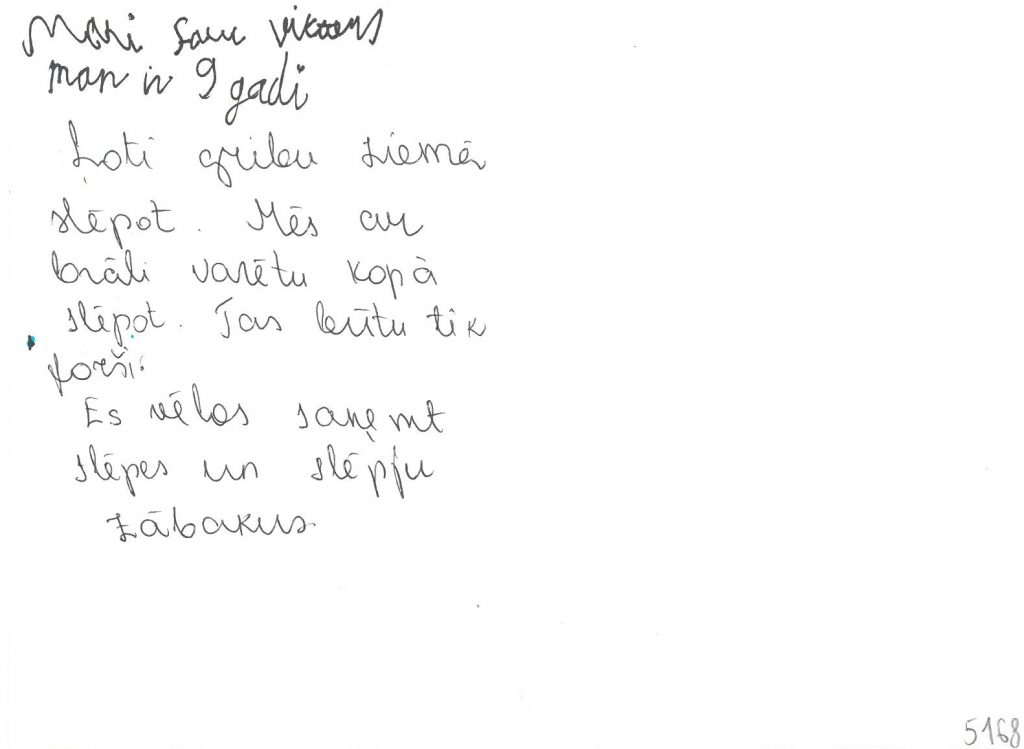 Mani sauc Viktors
man ir 9 gadi
Ļoti gribu ziemā
slēpot. Mēs ar
brāli varētu kopā
slēpot. Tas būtu tik
forši.
Es vēlos saņemt
slēpes un slēpju
zābakus
5168